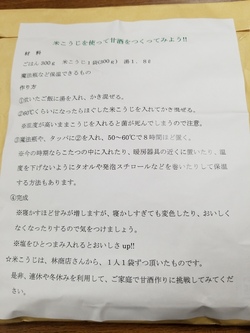 米こうじを使って甘酒をつくってみよう!!
材 料
ごはん300g 米こうじ1袋(300g) 湯1.8ℓ
魔法瓶など保温できるもの
作り方
①炊いたご飯に湯を入れ、かき混ぜる。
②60℃くらいになったらほぐした米こうじを入れてかき混ぜる。
※温度が高いままこうじを入れると菌が死んでしまうので注意。
③魔法瓶や、タッパに②を入れ、50～60℃で8時間ほど置く。
※今の時期ならこたつの中に入れたり、暖房器具の近くに置いたり、温
度を下げないようにタオルや発泡スチロールなどを巻いたりして保温
する方法もあります。
④完成
※寝かすほど甘みが増しますが、寝かしすぎても変色したり、おいしく
なくなったりするので気をつけましょう。
※塩をひとつまみ入れるとおいしさup!!
☆米こうじは、林商店さんから、1人1袋ずつ頂いたものです。
是非、連休や冬休みを利用して、ご家庭で甘酒作りに挑戦してみてくだ
さい。